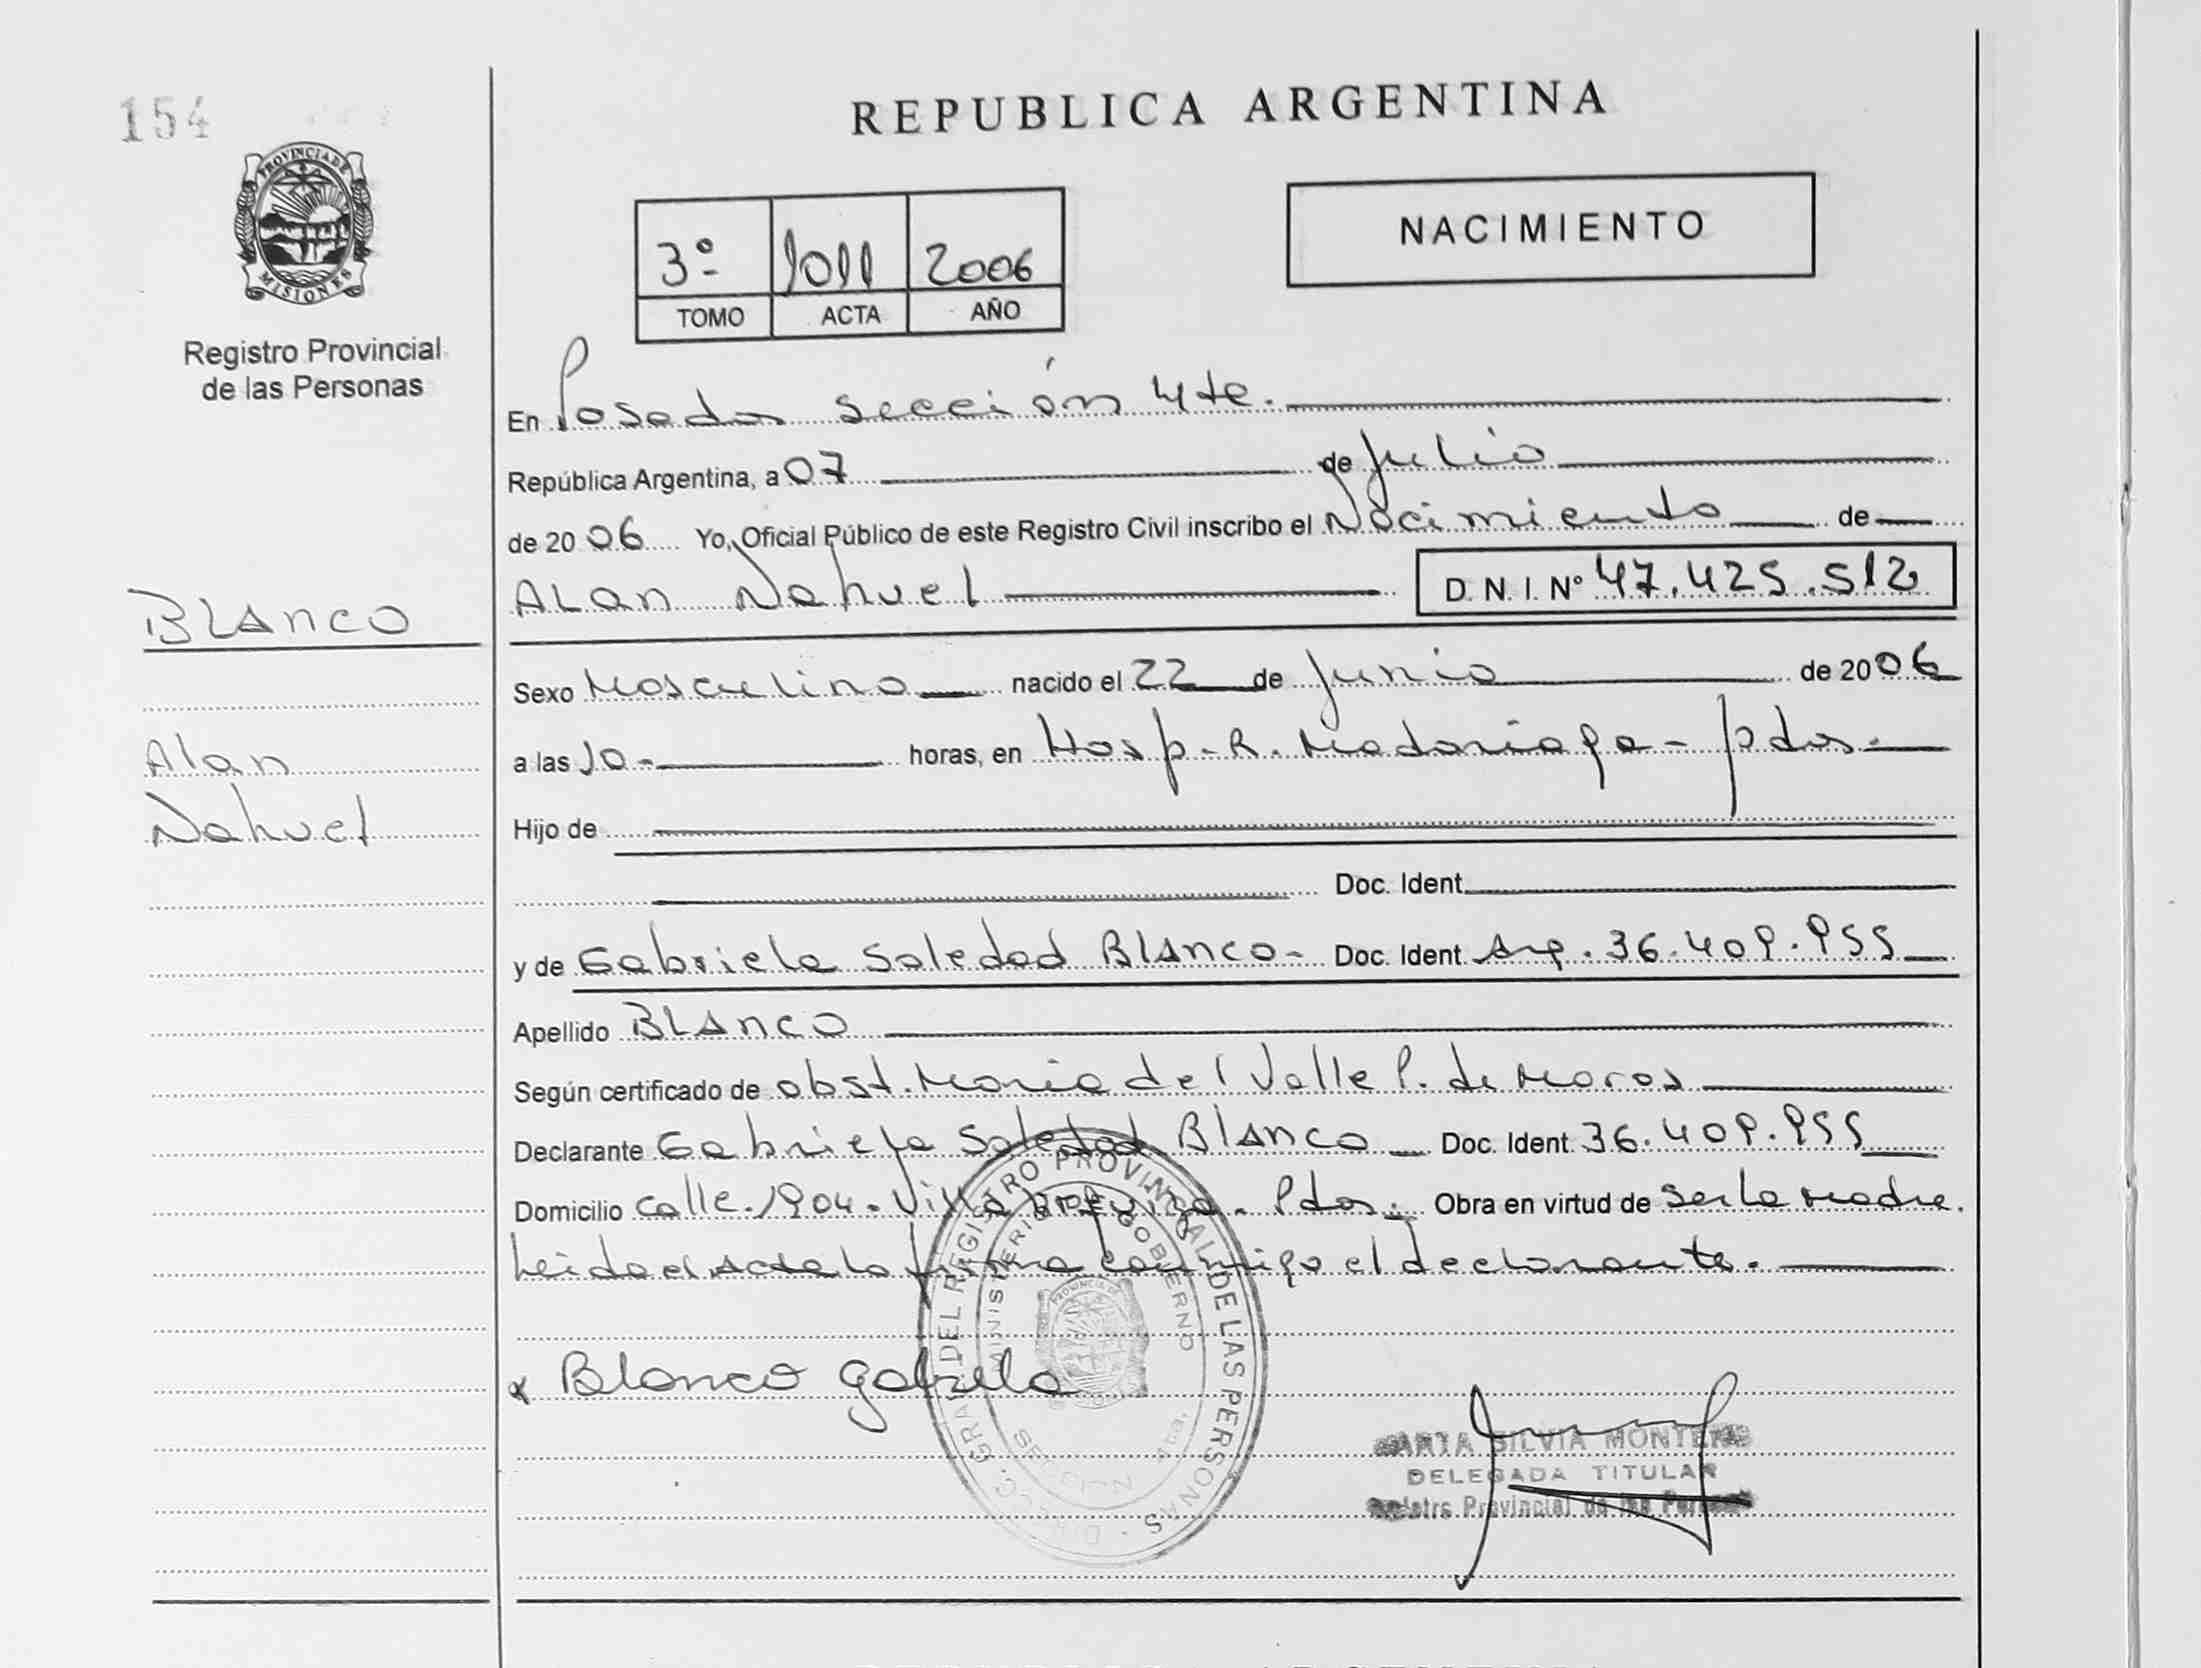 154
PROVINCIA DE
MISIONES
Registro Provincial
de las Personas
BLANCO
Alan
Nahuel
REPUBLICA ARGENTINA
NACIMIENTO
3º 1011 2006
TOMO ACTA AÑO
En Posadas sección 4te.
República Argentina, a 07 de Julio
de 2006 Yo, Oficial Público de este Registro Civil inscribo el Nacimiento de
ALan Nahuel D. N. I. Nº 47.425.512
Sexo Masculino nacido el 22 de Junio de 2006
a las 10- horas, en Hosp. R. Madariaga - Pdas.
Hijo de
Doc. Ident.
y de Gabriela Soledad BLANCO- Doc. Ident. Arg. 36.409.955
Apellido BLANCO
Según certificado de obst. Maria del Valle P. de Moros
Declarante Gabriela Soledad BLANCO Doc. Ident. 36.409.955
Domicilio calle. 1904. Villa - Pdas. Obra en virtud de ser la madre.
Leida el Acta la firma conmigo el declarante.
x Blanco Gabriela
DIRECC. GRAL DEL REGISTRO PROVINCIAL DE LAS PERSONAS
MINISTERIO DE GOBERNO
MISIONES
SILVIA
DELEGADA TITULAR
Registro Provincial de las Personas